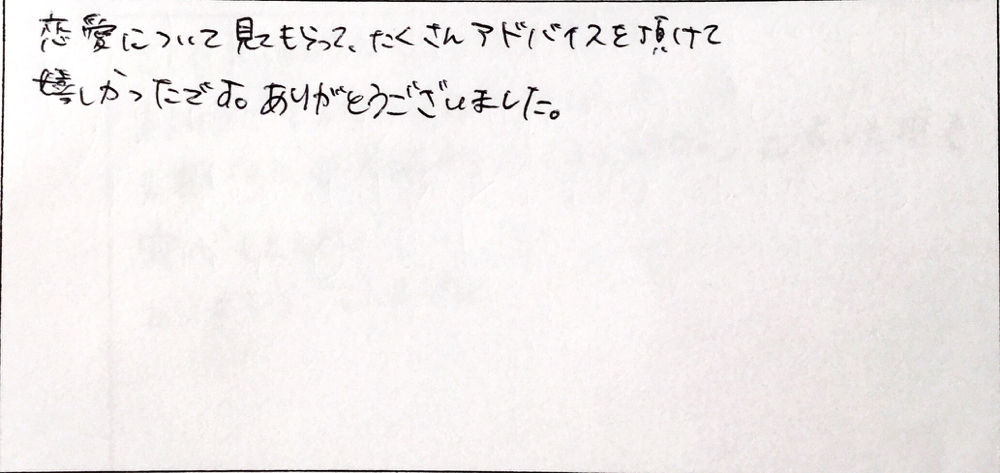 恋愛について見てもらって、たくさんアドバイスを頂けて
嬉しかったです。ありがとうございました。